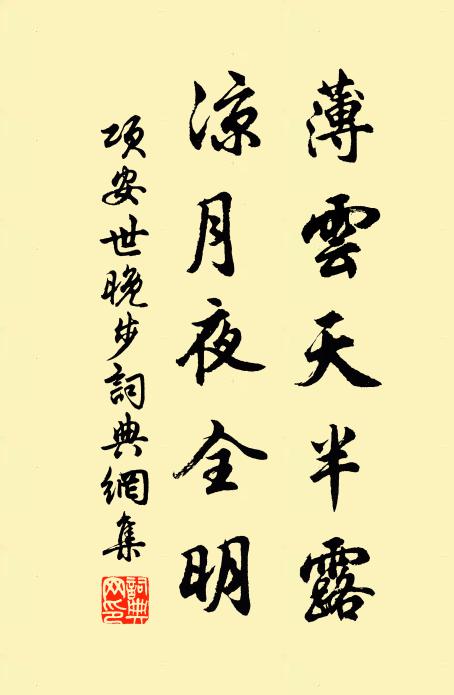 薄雲天半露
涼月夜全明
項安世晚步詞典網集
詞典網印